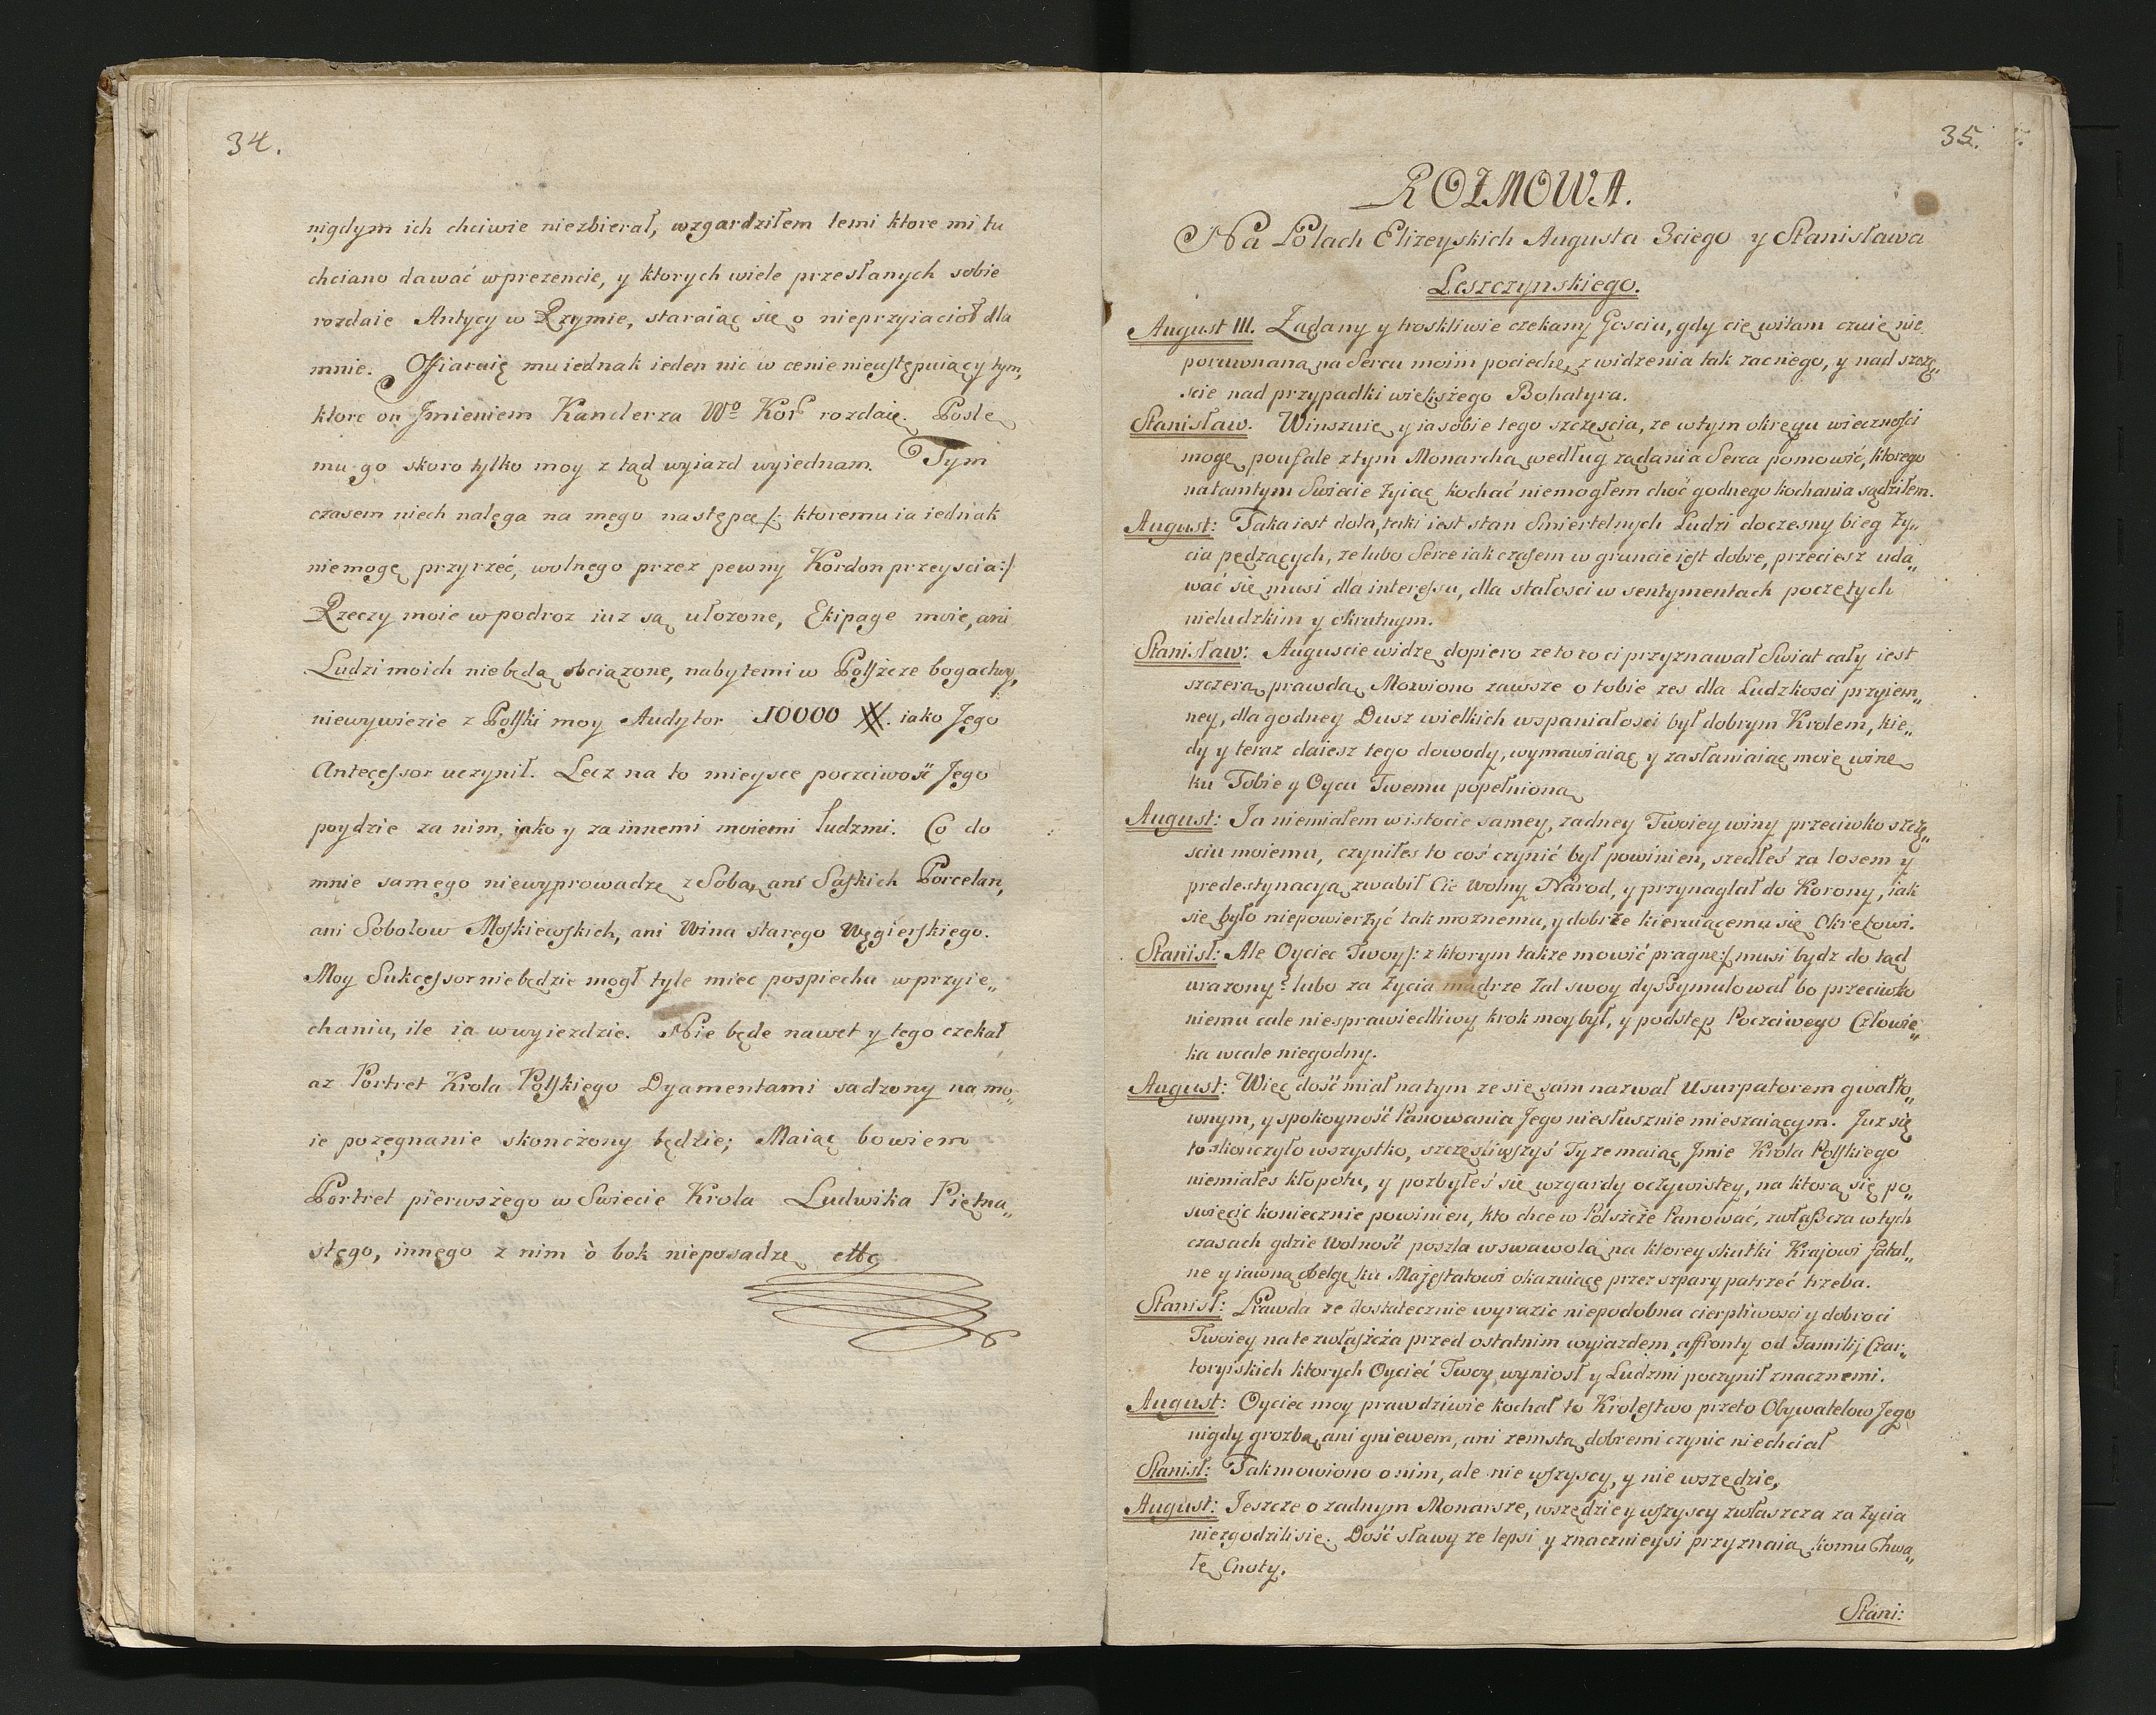 34.
nigdym ich chciwie niezbierał, wzgardziłem temi ktore mi tu
chciano dawać w prezencie, y ktorych wiele przesłanych sobie
rozdaie Antycy w Rzymie, staraiąc się o nieprzyiacioł dla
mnie. Offiaruię mu iednak ieden nic w cenie nieustępuiący tym,
ktore on Jmieniem Kanclerza Wº Kor rozdaie. Posle
mu go skoro tylko moy z tąd wyiazd wyiednam. Tym
czasem niech nalega na mego następcę /: ktoremu ia iednak
niemogę przyrzeć, wolnego przez pewny Kordon przeyscia :/
Rzeczy moie w podroz iuz są ułozone, Ekipage moie, ani
Ludzi moich niebędą obciązone, nabytemi w Polszcze bogactwy,
niewywiezie z Polski moy Audytor 10000 iako Jego
Antecessor uczynił. Lecz na to mieysce poczciwość Jego
poydzie za nim, iako y za innemi moiemi ludzmi. Co do
mnie samego niewyprowadzę z Sobą, ani Saskich Porcelan,
ani Sobolow Moskiewskich, ani Wina starego Węgierskiego.
Moy Sukcessor niebędzie mogł tyle miec pospiechu w przyie„
chaniu, ile ia w wyiezdzie. Nie będe nawet y tego czekał
az Portret Krola Polskiego Dyamentami sadzony na mo„
ie pozęgnanie skonczony będzie; Maiąc bowiem
Portret pierwszego w Swiecie Krola Ludwika Piętna„
stego, innego z nim ò bok nieposadzę ettc
35.
ROZMOWA.
Na Polach Elizeyskich Augusta 3ciego y Stanisława
Leszczynskiego.
August III. Ządany y troskliwie czekany Gosciu, gdy cię witam czuię nie
porownaną na Sercu moim pociechę, z widzenia tak zacnego, y nad szczę„
scie nad przypadki większego Bohatyra.
Stanisław. Winszuię y ia sobie tego szczęscia, ze w tym okręgu wiecznosci
mogę poufale z tym Monarchą według ządania Serca pomowić, ktorego
na tamtym Swiecie zyiąc kochać niemogłem choć godnego kochania sądziłem.
August: Taka iest dola, taki iest stan Smiertelnych Ludzi doczesny bieg zy„
cia pędzących, ze lubo Serce iak czasem w gruncie iest dobre, przeciesz uda„
wać się musi dla interessu, dla stałosci w sentymentach poczętych
nieludzkim y okrutnym.
Stanisław: Auguscie widzę dopiero ze to co ci przyznawał Swiat cały iest
szczerą prawdą. Mowiono zawsze o tobie zes dla Ludzkosci przyiem„
ney, dla godney Dusz wielkich wspaniałosci był dobrym Krolem, kie„
dy y teraz daiesz tego dowody, wymawiaiąc y zasłaniaiąc moię winę
ku Tobie y Oycu Twemu popełnioną
August: Ja niemiałem w istocie samey, zadney Twoiey winy przeciwko szczę„
sciu moiemu, czyniłes to coś czynić był powinien, szedłeś za losem y
predestynacyą zwabił Cie Wolny Narod, y przynaglał do Korony, iak
się było niepowierzyć tak moznemu, y dobrze kieruiącemu się Okrętowi.
Stanisł: Ale Oyciec Twoy /: z ktorym takze mowić pragnę :/ musi bydz do tąd
urazony? lubo za zycia mądrze zal swoy dyssymulował bo przeciwko
niemu cale niesprawiedliwy krok moy był, y podstęp Poczciwego Człowie„
ka wcale niegodny.
August: Więc dość miał na tym ze się sam nazwał Usurpatorem gwałto„
wnym, y spokoyność Panowania Jego niesłusznie mieszaiącym. Juz się
to skonczyło wszystko, szczęśliwszyś Ty ze maiąc Jmie Krola Polskiego
niemiałes kłopotu, y pozbyłeś się wzgardy oczywistey, na ktorą się po„
swięcic koniecznie powinien, kto chce w Polszcze Panować, zwłaszcza w tych
czasach gdzie Wolność poszła w swawolą na ktorey skutki Krajowi fatal„
ne y iawną obelgę ku Majestatowi okazuiącę przez szpary patrzeć trzeba.
Stanisł: Prawda ze dostatecznie wyrazic niepodobna cierpliwosci y dobroci
Twoiey na te zwłaszcza przed ostatnim wyjazdem affronty od Familij Czar„
toryiskich ktorych Oyciec Twoy wyniosł y Ludzmi poczynił znacznemi.
August: Oyciec moy prawdziwie kochał to Krolestwo przeto Obywatelow Jego
nigdy grozbą, ani gniewem, ani zemstą dobremi czynic niechciał
Stanisł: Tak mowiono o nim, ale nie wszyscy, y nie wszędzie,
August: Jeszcze o zadnym Monarsze, wszędzie y wszyscy zwłaszcza za zycia
niezgodzili się. Dość sławy ze lepsi y znacznieysi przyznaią komu Chwa„
łę Cnoty.
Stani: